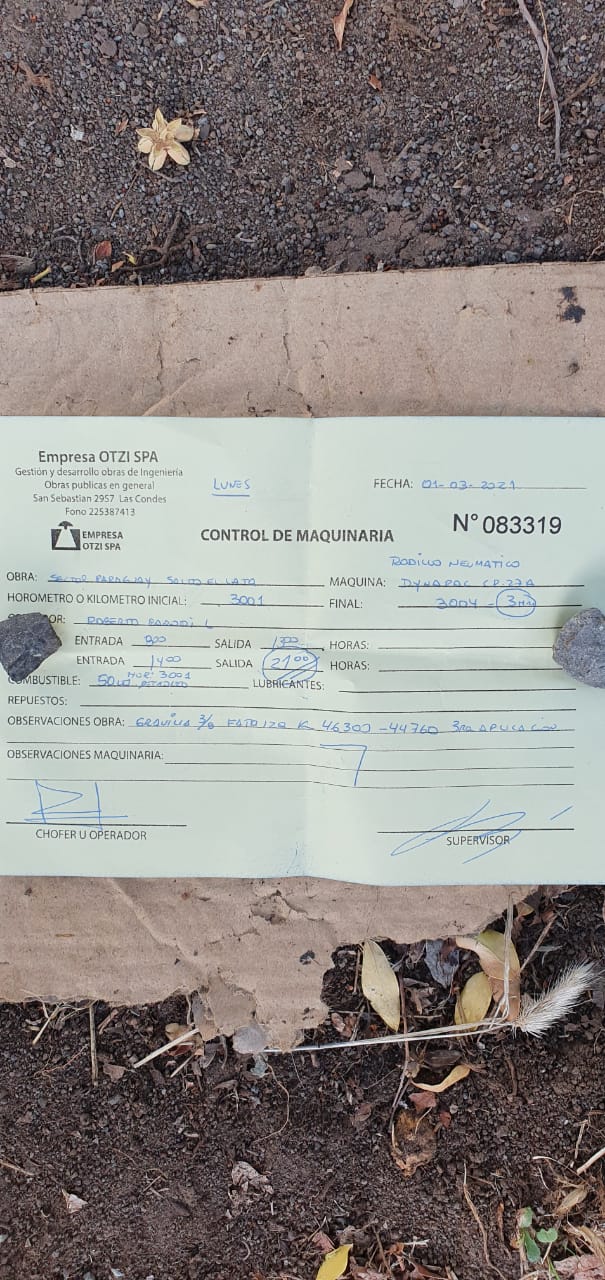 Empresa OTZI SPA
Gestión y desarrollo obras de Ingeniería
Obras publicas en general
San Sebastian 2957 Las Condes
Fono 225387413
EMPRESA
OTZI SPA
LUNES
FECHA: 01-03-2021
CONTROL DE MAQUINARIA
N° 083319
RODILLO NEUMATICO
OBRA: SECTOR PARAGUAY SALTO EL LAJA MAQUINA: DYNAPAC CP-27A
HOROMETRO O KILOMETRO INICIAL: 3001 FINAL: 3004 - 3
ROBERTO L
ENTRADA 800 SALIDA 1300 HORAS:
ENTRADA 1400 SALIDA 2100 HORAS:
HOR: 3001
COMBUSTIBLE: 50 PETROLEO LUBRICANTES:
REPUESTOS:
OBSERVACIONES OBRA: GRAVILLA 3/8 K 46300 - 44760 3RA APLICACION
OBSERVACIONES MAQUINARIA:
CHOFER U OPERADOR
SUPERVISOR